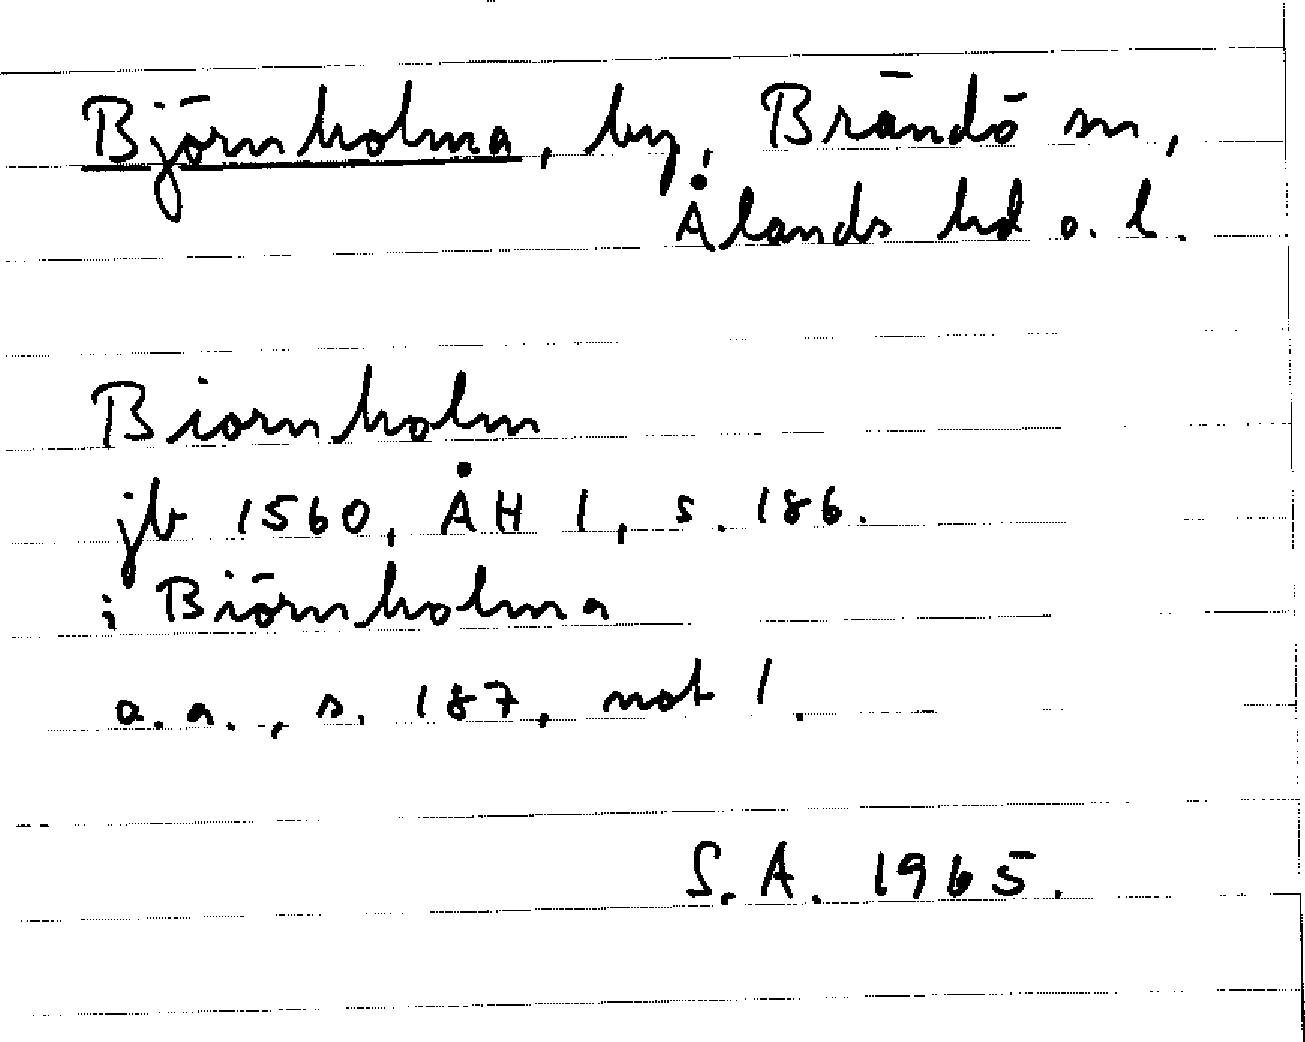 Björnholma, by, Brändö sn,
Ålands hd o. l.
Biornholm
jb 1560, ÅH 1, s. 186.
i Biörnholma
a.a., s. 187, not 1.
S.A. 1965.